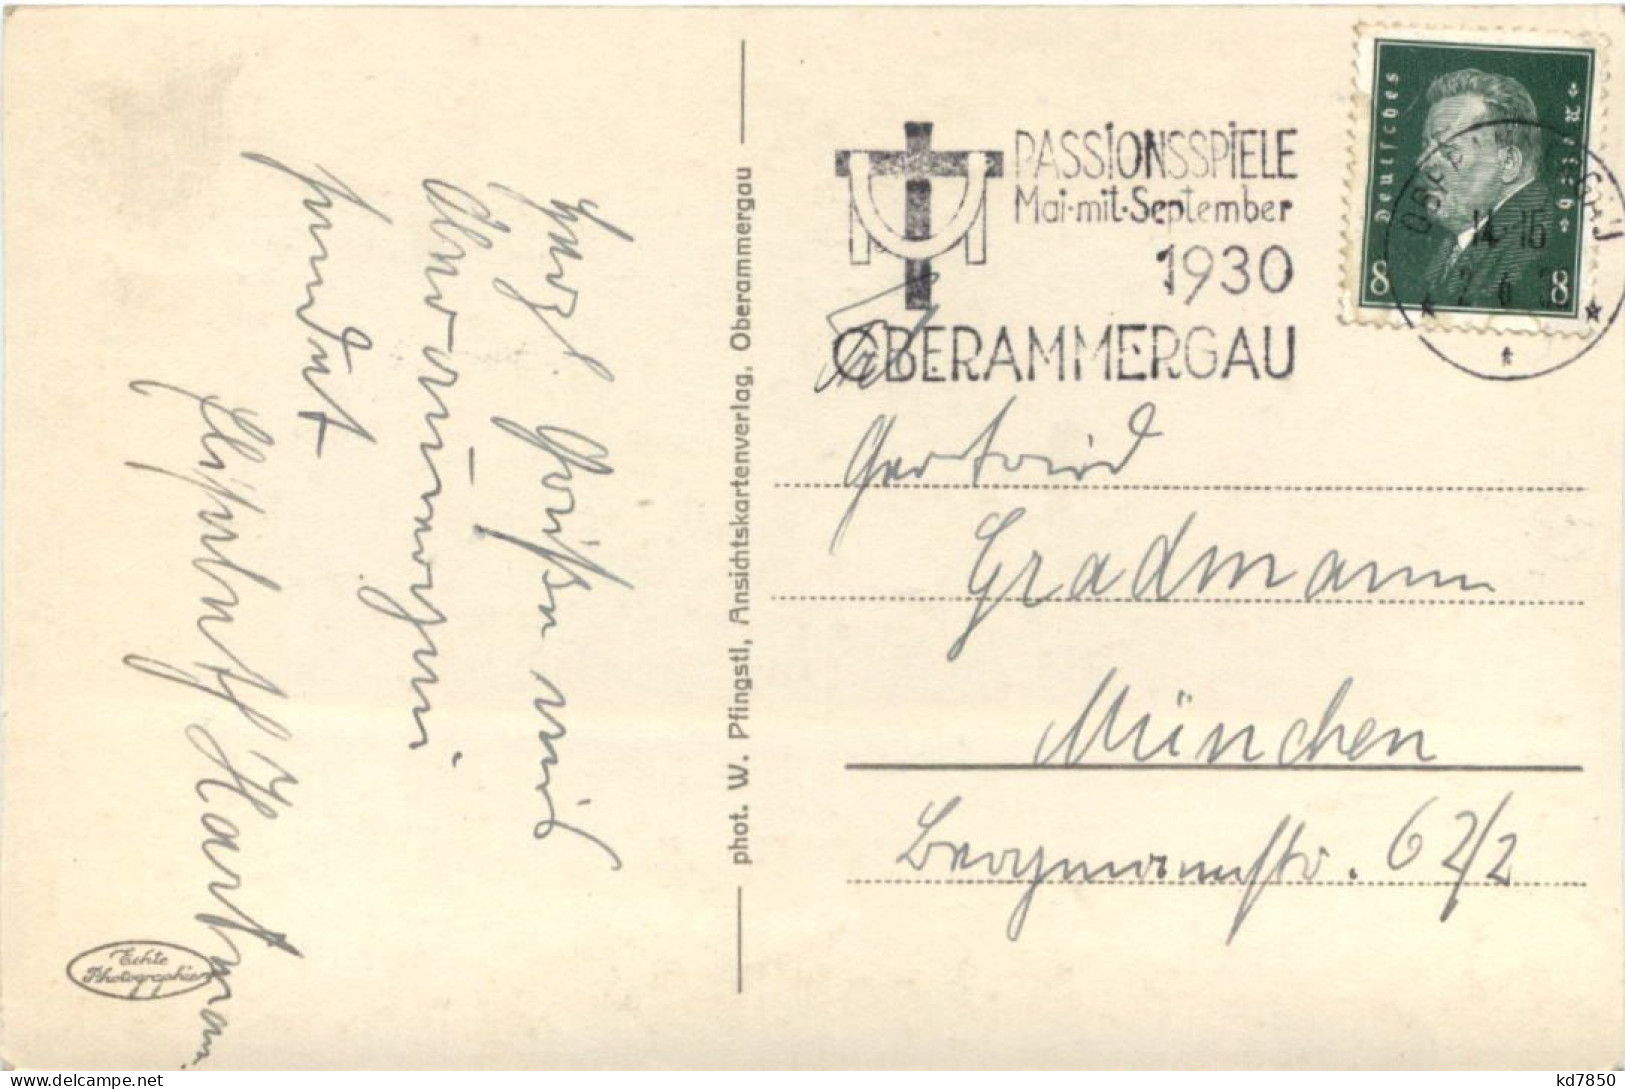 Herzl. Grüße aus
Oberammergau
sendet
Hartmann
Echte
Photographie
phot. W. Pfingstl, Ansichtskartenverlag, Oberammergau
PASSIONSSPIELE
Mai-mit-September
1930
OBERAMMERGAU
Deutsches Reich
8 8
OBERAMMERGAU
14-15
2 6
Frl.
Gertrud
Gradmann
München
Bergmannstr. 62/2
kd7850